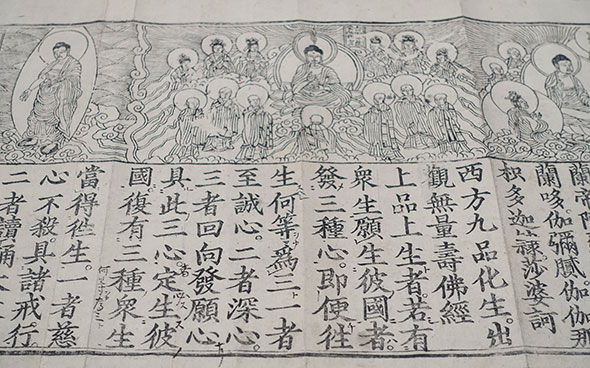 蘭帝
蘭哆伽彌膩伽伽那
枳多迦隸莎婆訶
西方九品化生。出
觀無量壽佛經
上品上生者。若有
衆生願生彼國者。
發三種心。即便往
生何等爲三一者
至誠心。二者深心
三者回向發願心
具此三心定生彼
國復有三種衆生
當得徃生。一者慈
心不殺。具諸戒行
二者讀誦